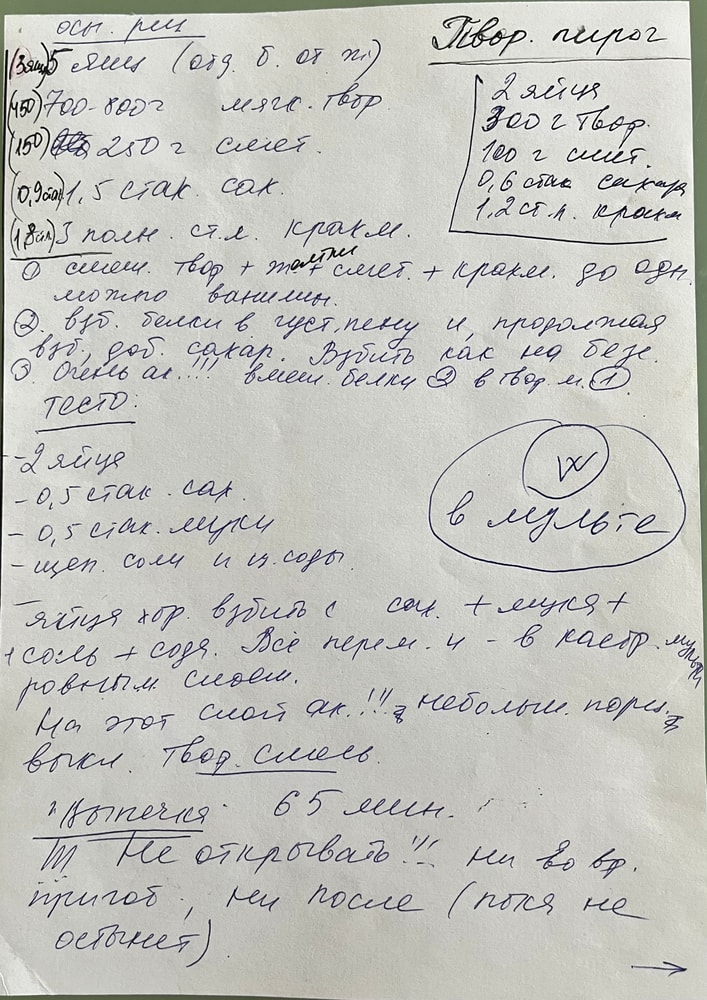 осн. рец
Твор. пирог
(3 яиц) 5 яиц (отд. б. от ж)
(450) 700-800 г мягк. твор
(150) 250 г смет.
(0,9 стак) 1,5 стак. сах.
(1,8 ст.л) 3 полн. ст.л. крахм.
2 яйца
300 г твор.
100 г смет.
0,6 стак сахара
1,2 ст.л. крахм
① смеш. твор + желтки + смет. + крахм. до одн.
можно ванилин.
②. взб. белки в густ. пену и, продолжая
взб, доб. сахар. Взбить как на безе.
③. Очень ак.!!! вмеш. белки ② в твор. м. ①.
тесто:
- 2 яйца
- 0,5 стак. сах.
- 0,5 стак. муки
- щеп. соли и щ. соды.
в мульте
- яйца хор. взбить с сах. + мука +
+ соль + сода. Всё перем. и - в кастр. мульти
ровным слоем.
На этот слой ак.!!! небольш. порц.
выкл. твор. смесь.
"Выпечка" 65 мин.
!!! Не открывать!!! ни во вр.
пригот., ни после (пока не
остынет)
→